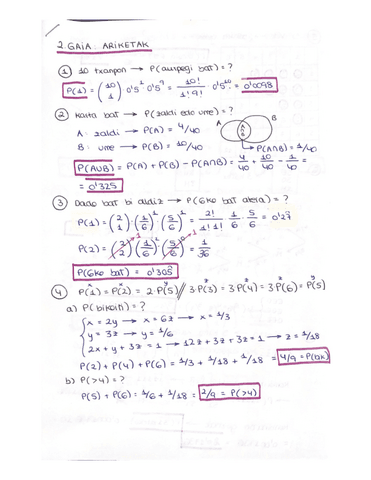 2. GAIA: ARIKETAK
① 10 txanpon → P(aurpegi bat) = ?
P(1) = (10 1) 0'5¹ 0'5⁹ = 10!/1!9! 0'5¹⁰ = 0'0098
② Karta bat → P(zaldi edo urre) = ?
A: zaldi → P(A) = 4/40
B: urre → P(B) = 10/40
A A∩B B
P(A∩B) = 1/40
P(A∪B) = P(A) + P(B) - P(A∩B) = 4/40 + 10/40 - 1/40 =
= 0'325
③ Dado bat bi aldiz → P(6ko bat atera) = ?
P(1) = (2 1) · (1/6)¹ · (5/6)¹ = 2!/1!1! · 1/6 · 5/6 = 0'27
P(2) = (2 2) (1/6)² (5/6)⁰ = 1/36
P(6ko bat) = 0'305
④ P(1) = P(2) = 2·P(5) // 3·P(3) = 3·P(4) = 3·P(6) = P(5)
a) P(bikoiti) = ?
x = 2y → x = 6z → x = 1/3
y = 3z → y = 1/6
2x + y + 3z = 1 → 12z + 3z + 3z = 1 → z = 1/18
P(2) + P(4) + P(6) = 1/3 + 1/18 + 1/18 = 4/9 = P(bik)
b) P(>4) = ?
P(5) + P(6) = 1/6 + 1/18 = 2/9 = P(>4)